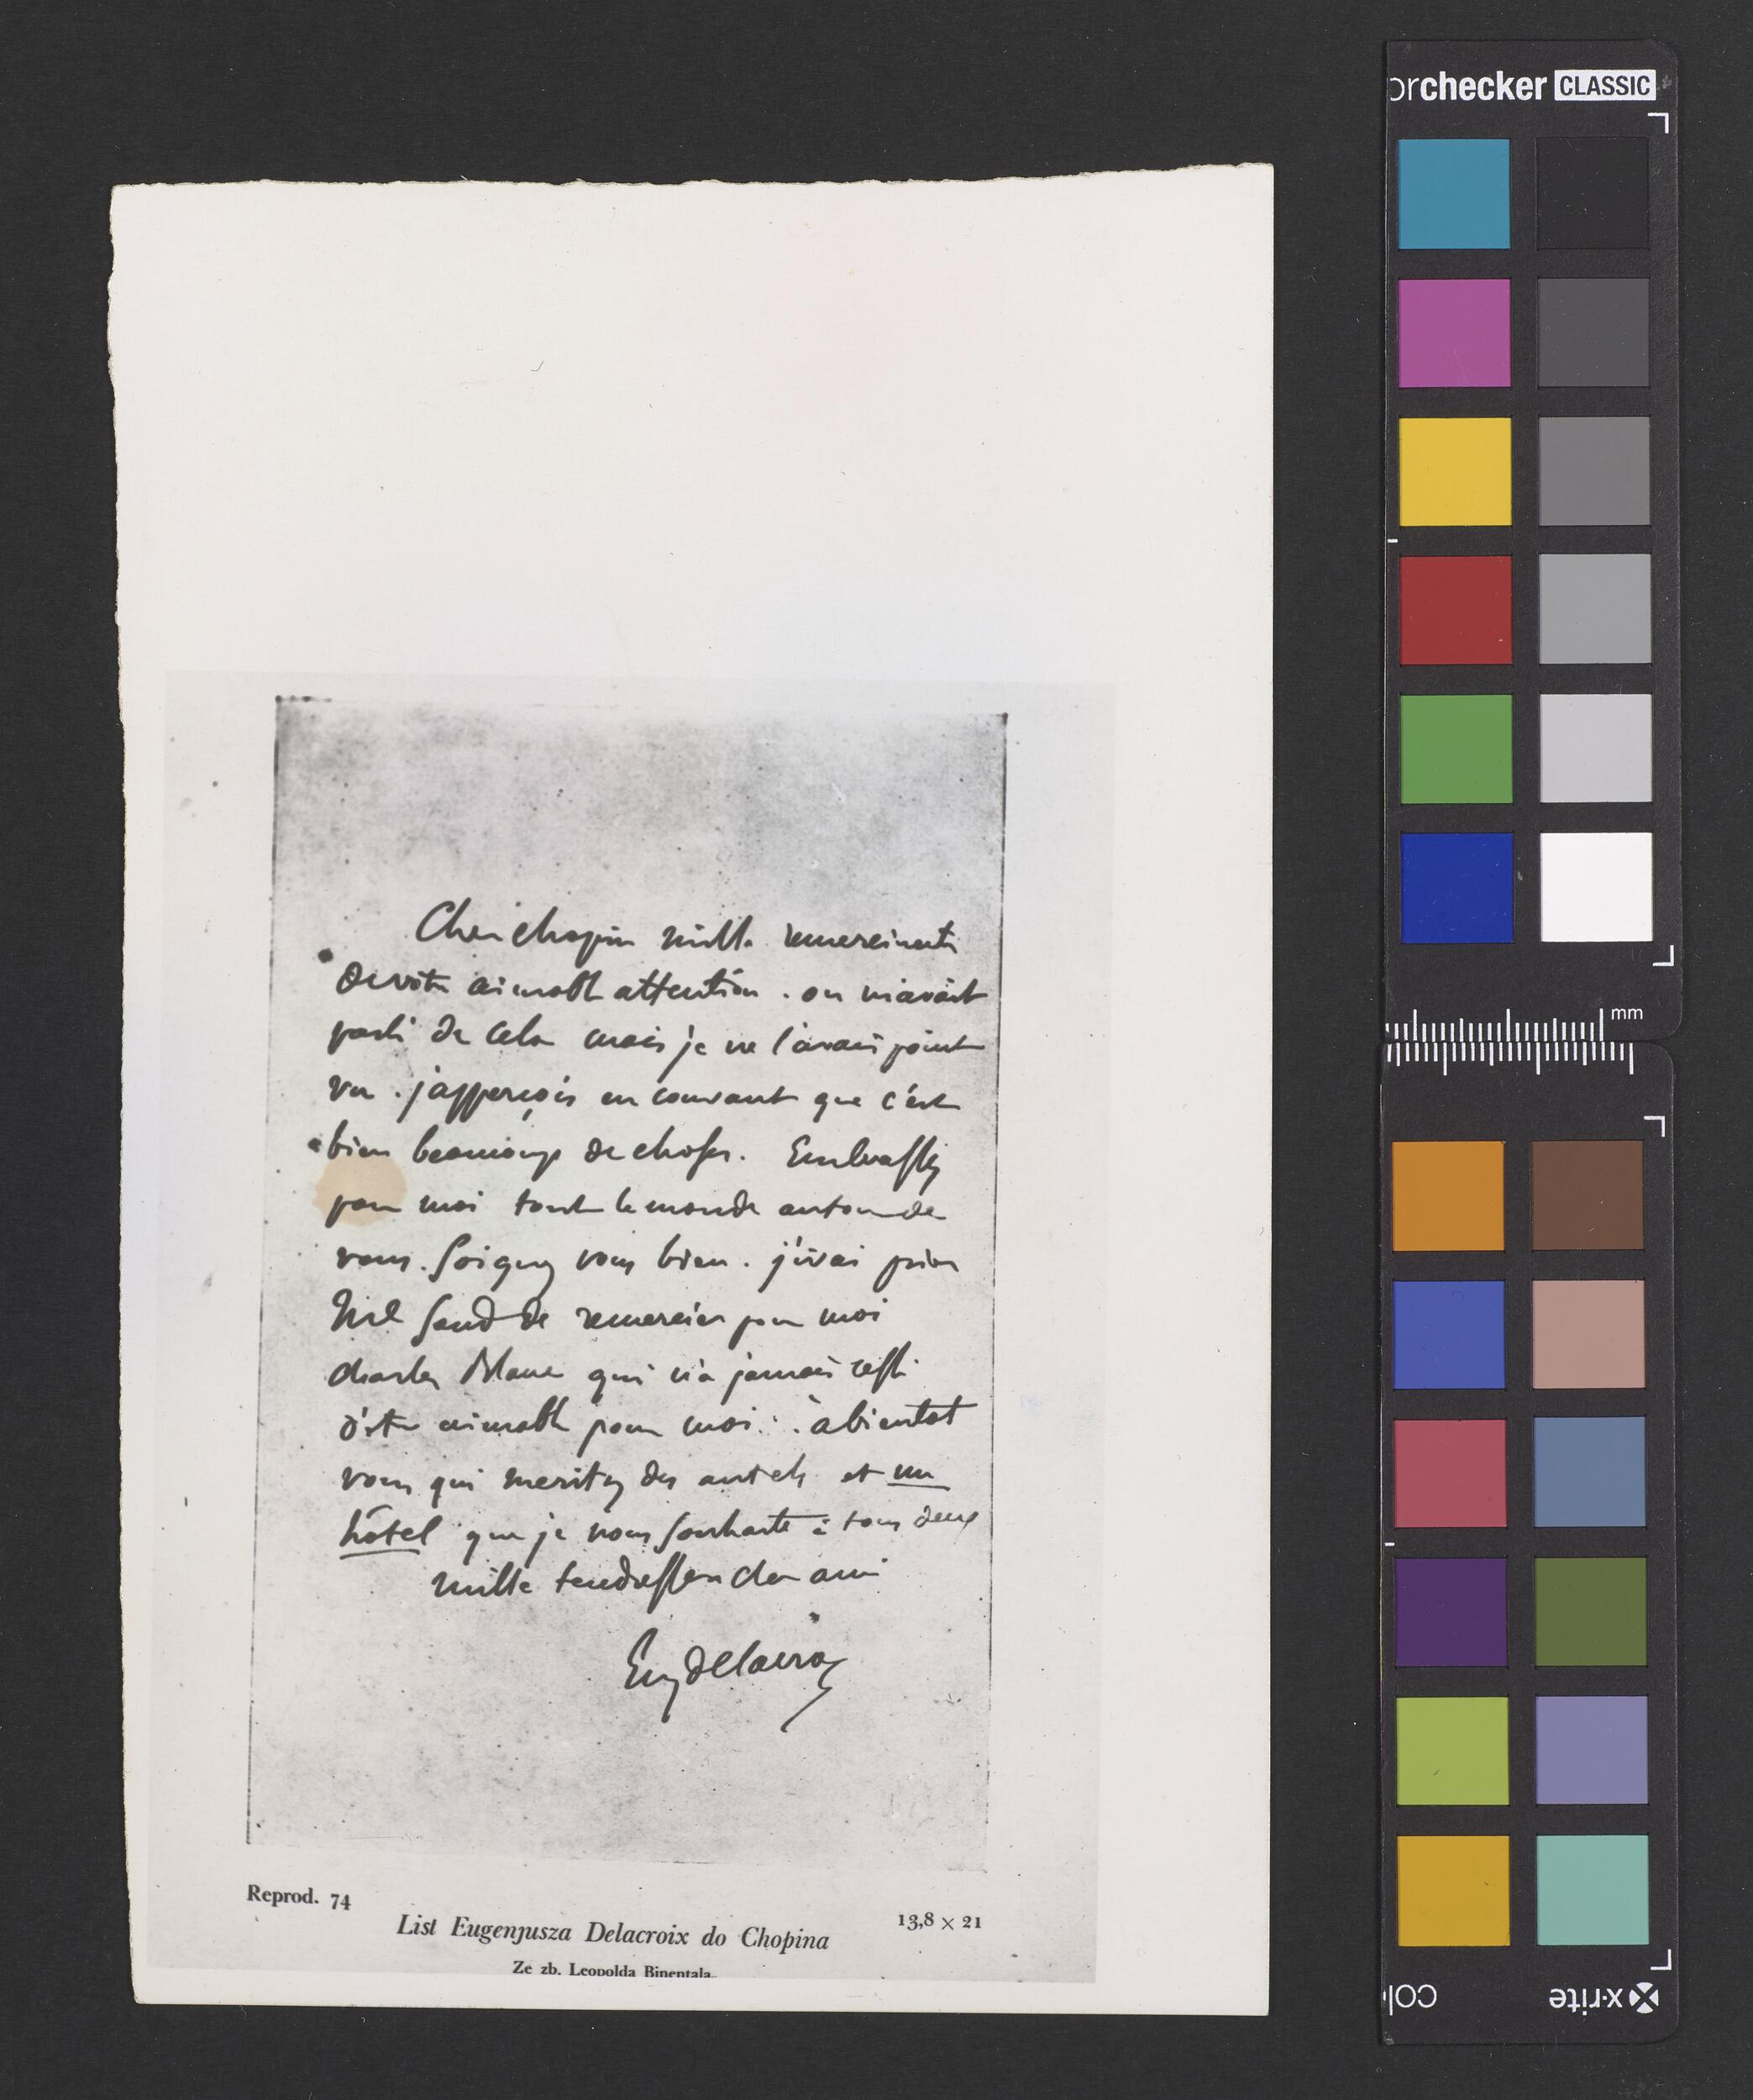 Cher chopin mille remerciments
de votre aimable attention . on m'avait
parlé de cela mais je ne l'avais point
vu . j'apperçois en courant que c'est
bien beaucoup de choses . Embrassez
pour moi tout le monde autour de
vous . Soignez vous bien . j'irai prier
Me Sand de remercier pour moi
charles Blanc qui n'a jamais cessé
d'être aimable pour moi . à bientot
vous qui meritez des autels et un
hôtel que je vous souhaite à tous deux
mille tendresses cher ami
Eug delacroix
Reprod. 74
13,8 × 21
List Eugenjusza Delacroix do Chopina
Ze zb. Leopolda Binentala.
orchecker CLASSIC
mm
x-rite
col